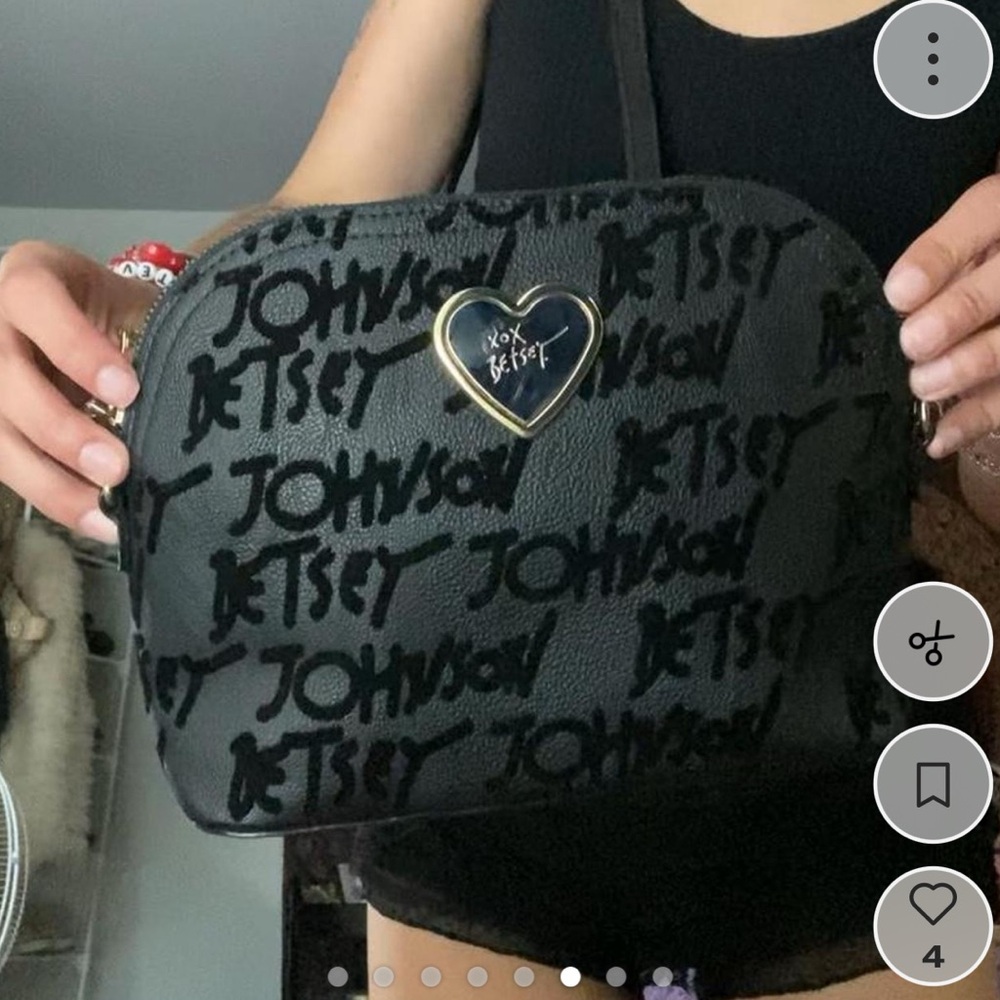 JOHNSON BETSEY
BETSEY
xox
BETSEY
JOHNSON BETSEY
BETSEY JOHNSON
JOHNSON BETSEY
BETSEY JOHNSON
4